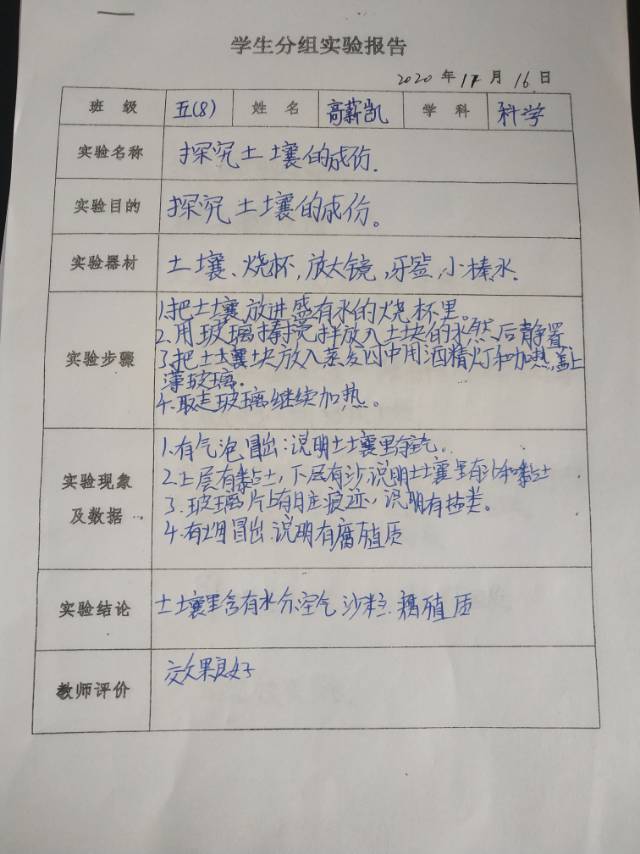 学生分组实验报告
2020 年 11 月 16 日
班 级 五(8) 姓 名 高薪凯 学 科 科学
实验名称 探究土壤的成份.
实验目的 探究土壤的成份。
实验器材 土壤、烧杯,放大镜,牙签,小棒水
实验步骤
1.把土壤放进盛有水的烧杯里。
2.用玻璃棒搅拌放入土块的水然后静置
3.把土壤块放入蒸发皿中用酒精灯加热,盖上
薄玻璃.
4.取走玻璃继续加热。
实验现象及数据
1.有气泡冒出:说明土壤里有空气。
2.上层有黏土,下层有沙,说明土壤里有沙和黏土
3.玻璃片上有 痕迹,说明有盐类。
4.有 冒出.说明有腐殖质
实验结论 土壤里含有水分.空气 沙粒. 殖质
教师评价 效果良好